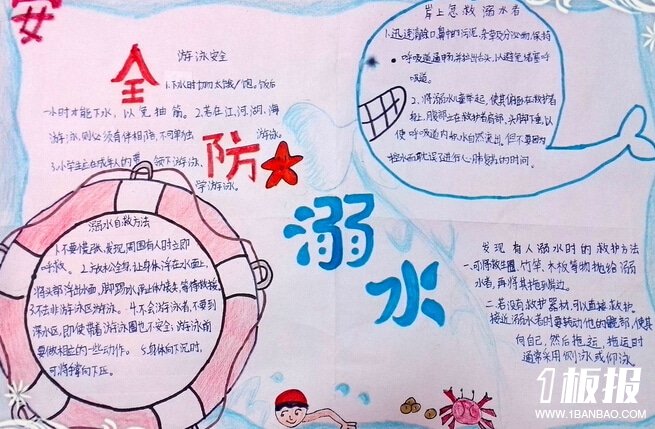 安
全
防
溺
水
游泳安全
1.下水时切勿太饿/饱。饭后
一小时才能下水,以免抽筋。2.若在江、河、湖、海
游泳,则必须有伴相陪,不可单独 游泳。
3.小学生应在成年人的 带领下游泳、
学游泳。
岸上急救溺水者
1.迅速清除口、鼻中的污泥、杂草及分泌物,保持
呼吸道通畅,并拉出舌头,以避免堵塞呼
吸道。
2.将溺水儿童举起,使其俯卧在救护者
肩上,腹部
头脚下垂,以
便呼吸道内积水自然流出。但不要因
的时间。
溺水自救方法
1.不要慌张,发现周围有人时立即
呼救。 2.放松全身,让身体浮在水面上,
将头部浮出水面,
等待救援。
3.不去非游泳区游泳。 4.不会游泳者,不要到
深水区,即使带着游泳圈也不安全。游泳前
要做相应的一些动作。 5.身体向下沉时,
可将掌向下压。
发现有人溺水时的救护方法
一.可将救生圈、竹竿、木板等物抛给溺
水者,再将其拖到岸边。
二.若没有救护器材,可以直接救护。
接近溺水者时要转动他的髋部,使其
向自己,然后拖运。拖运时
通常采用侧泳或仰泳。
1板报
WWW.1BANBAO.COM